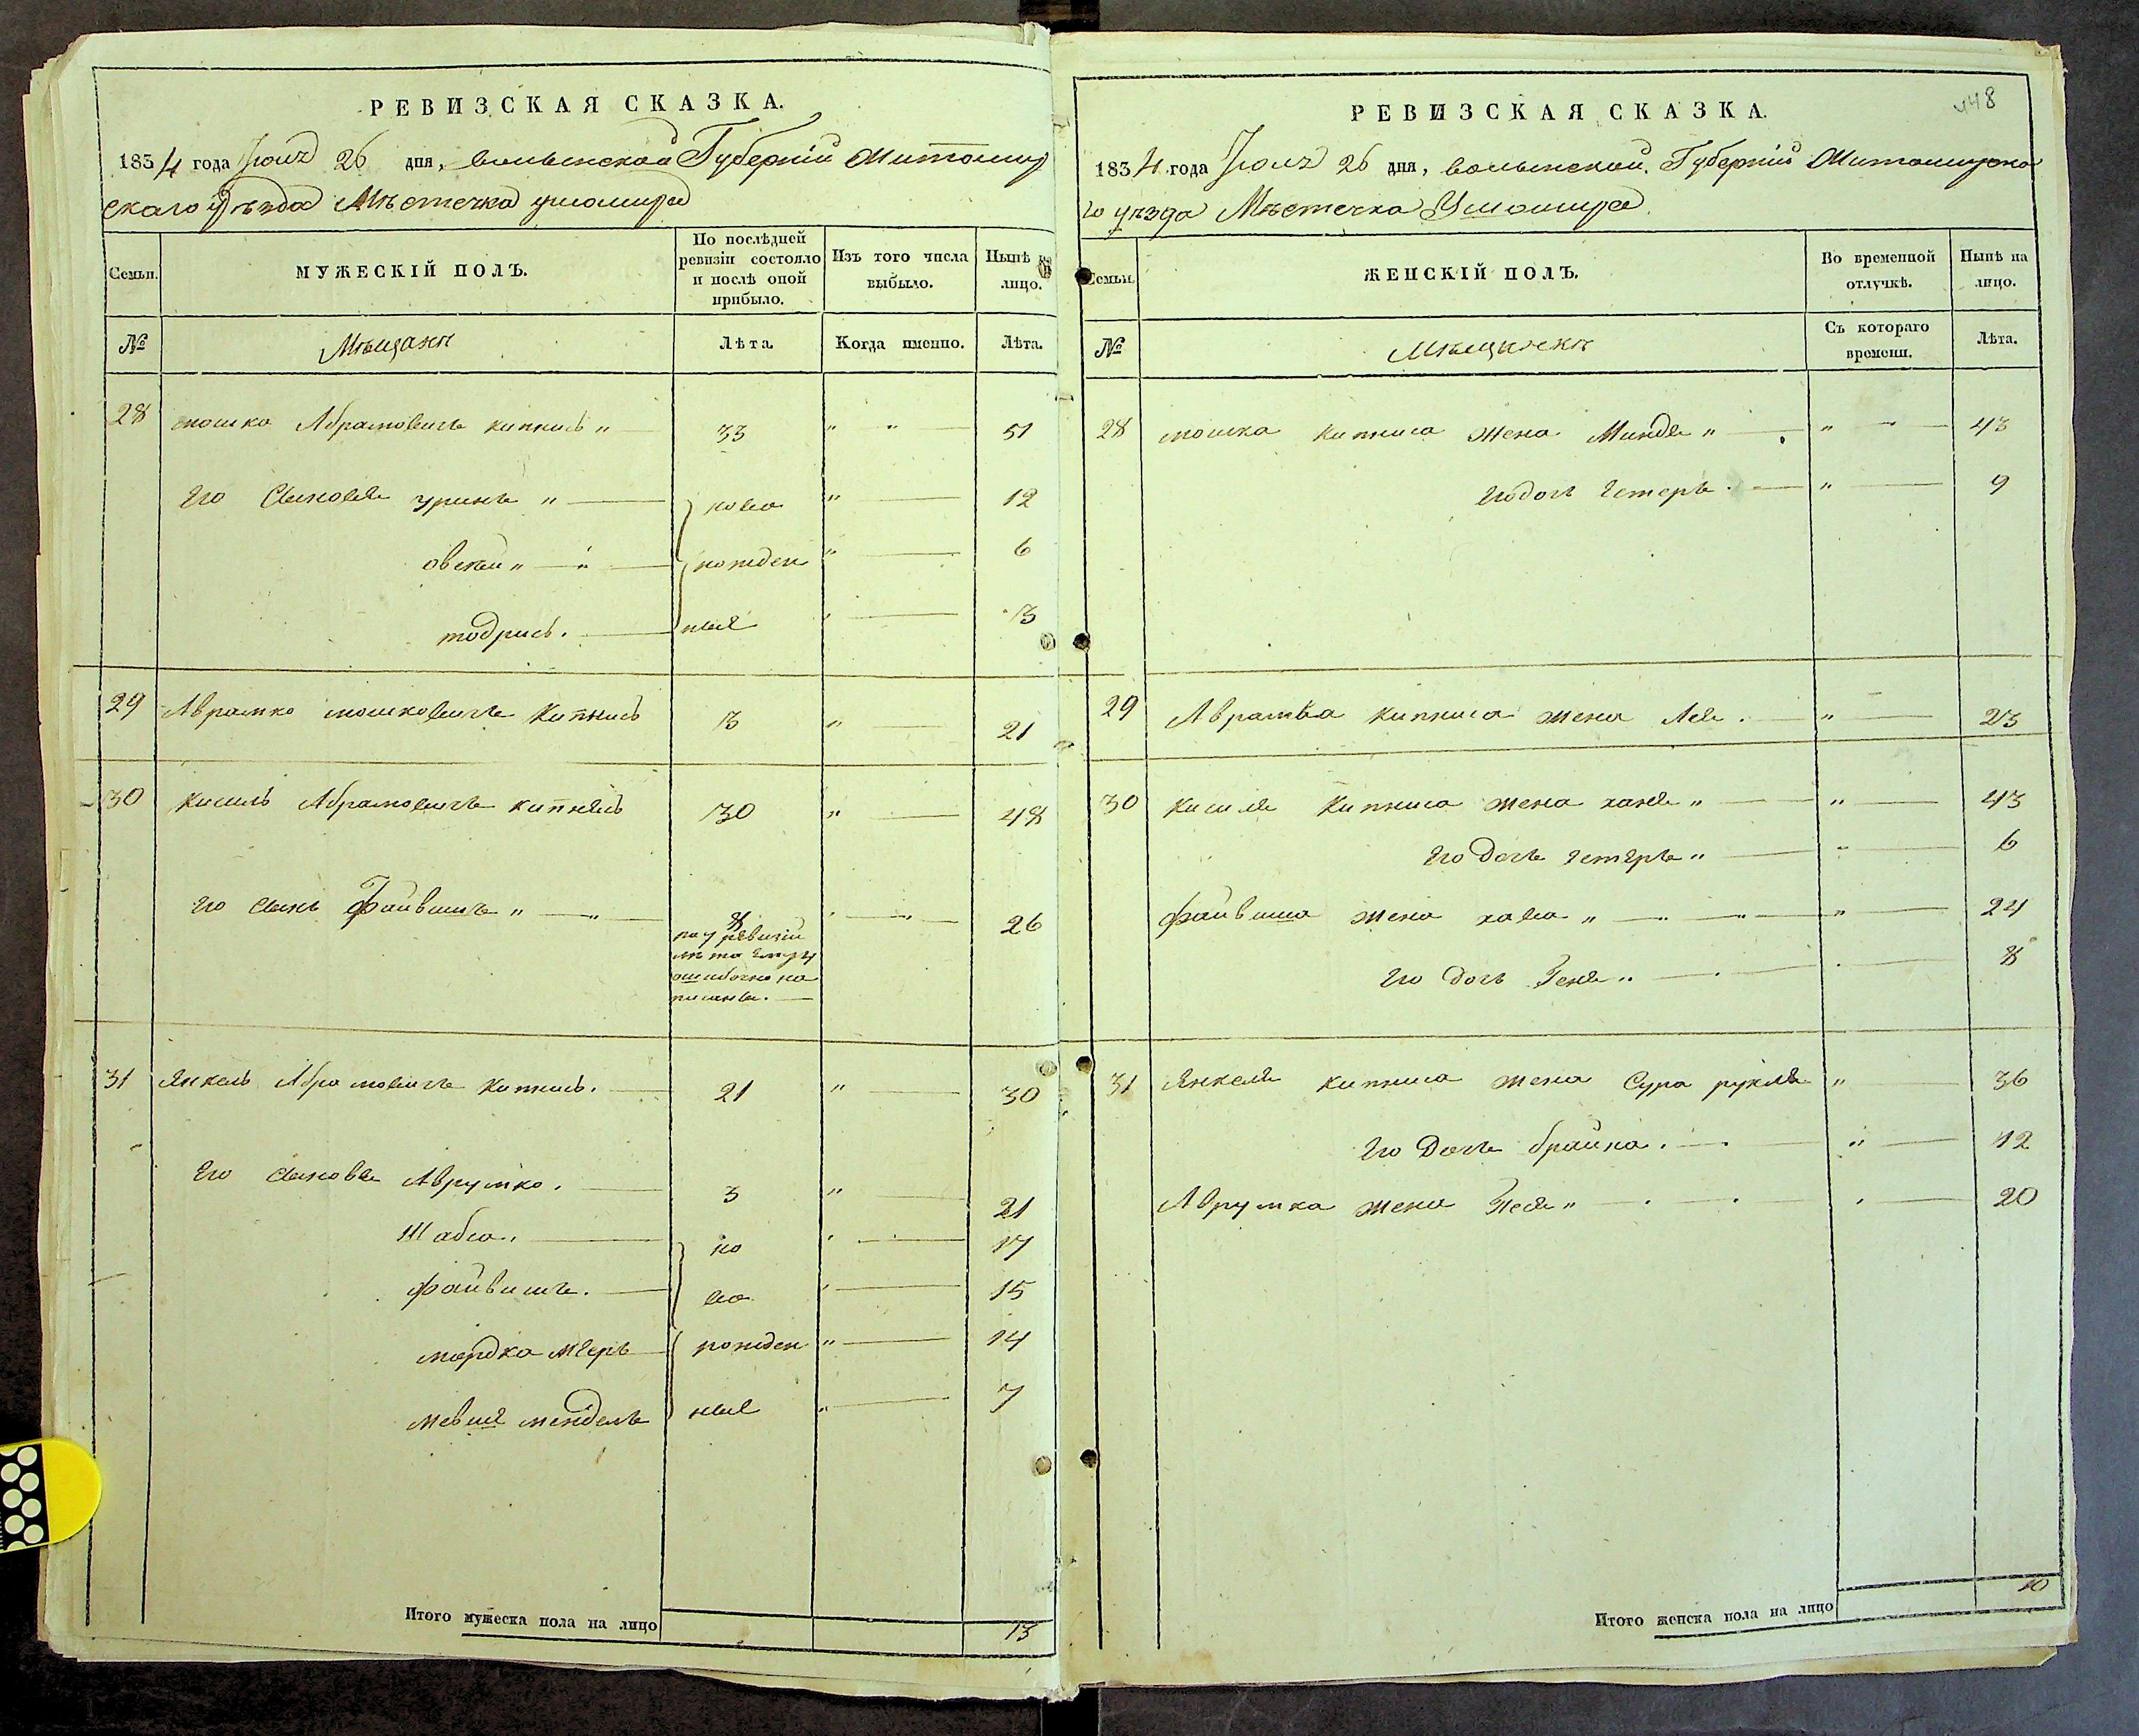 РЕВИЗСКАЯ СКАЗКА.
1834 года Іюня 26 дня, волынской Губерніи Житомир
скаго уѣзда Мѣстечка ушомира
Семьи.
МУЖЕСКІЙ ПОЛЪ.
По послѣдней ревизіи состояло и послѣ оной прибыло.
Изъ того числа выбыло.
Нынѣ на лицо.
№
Мѣщанъ
Лѣта.
Когда именно.
Лѣта.
28 мошко Абрамовичъ кипнисъ " 33 " " 51
Его Сыновья " ново " 12
" рожден " 6
тодрисъ. ныя 3
29 Аврамко мошковичъ Кипнисъ 3 " 21
30 Кисиль Абрамовичъ кипнисъ 30 " 48
Его Сынъ Файвишъ " " 8 " 26
по 7 ревизіи
лѣта ему
ошибочно на
писаны.
31 Янкель Абрамовичъ Кипнисъ. 21 " 30
Его Сыновья Аврумко. 3 " 21
Шабса. но 17
файвишъ. во 15
мордко мееръ рожден " 14
мендель ныя " 7
Итого мужеска пола на лицо 13
448
РЕВИЗСКАЯ СКАЗКА.
1834 года Іюня 26 дня, волынской Губерніи Житомирска
го уѣзда Мѣстечка Ушомира
Семьи.
ЖЕНСКІЙ ПОЛЪ.
Во временной отлучкѣ.
Нынѣ на лицо.
№
Мѣщанокъ
Съ котораго времени.
Лѣта.
28 мошка кипниса жена Миндя " " 43
Его дочь Естеръ. " 9
29 Аврамка кипниса жена Лея. " 23
30 Кисиля Кипниса жена ханя " " 43
Его дочь естеръ " 6
файвиша жена хава " " " 24
Его дочь Геня " 8
31 Янкеля кипниса жена Сура рухля " 36
Его Дочь брайна. " 12
Аврумка жена Песя " 20
Итого женска пола на лицо 10